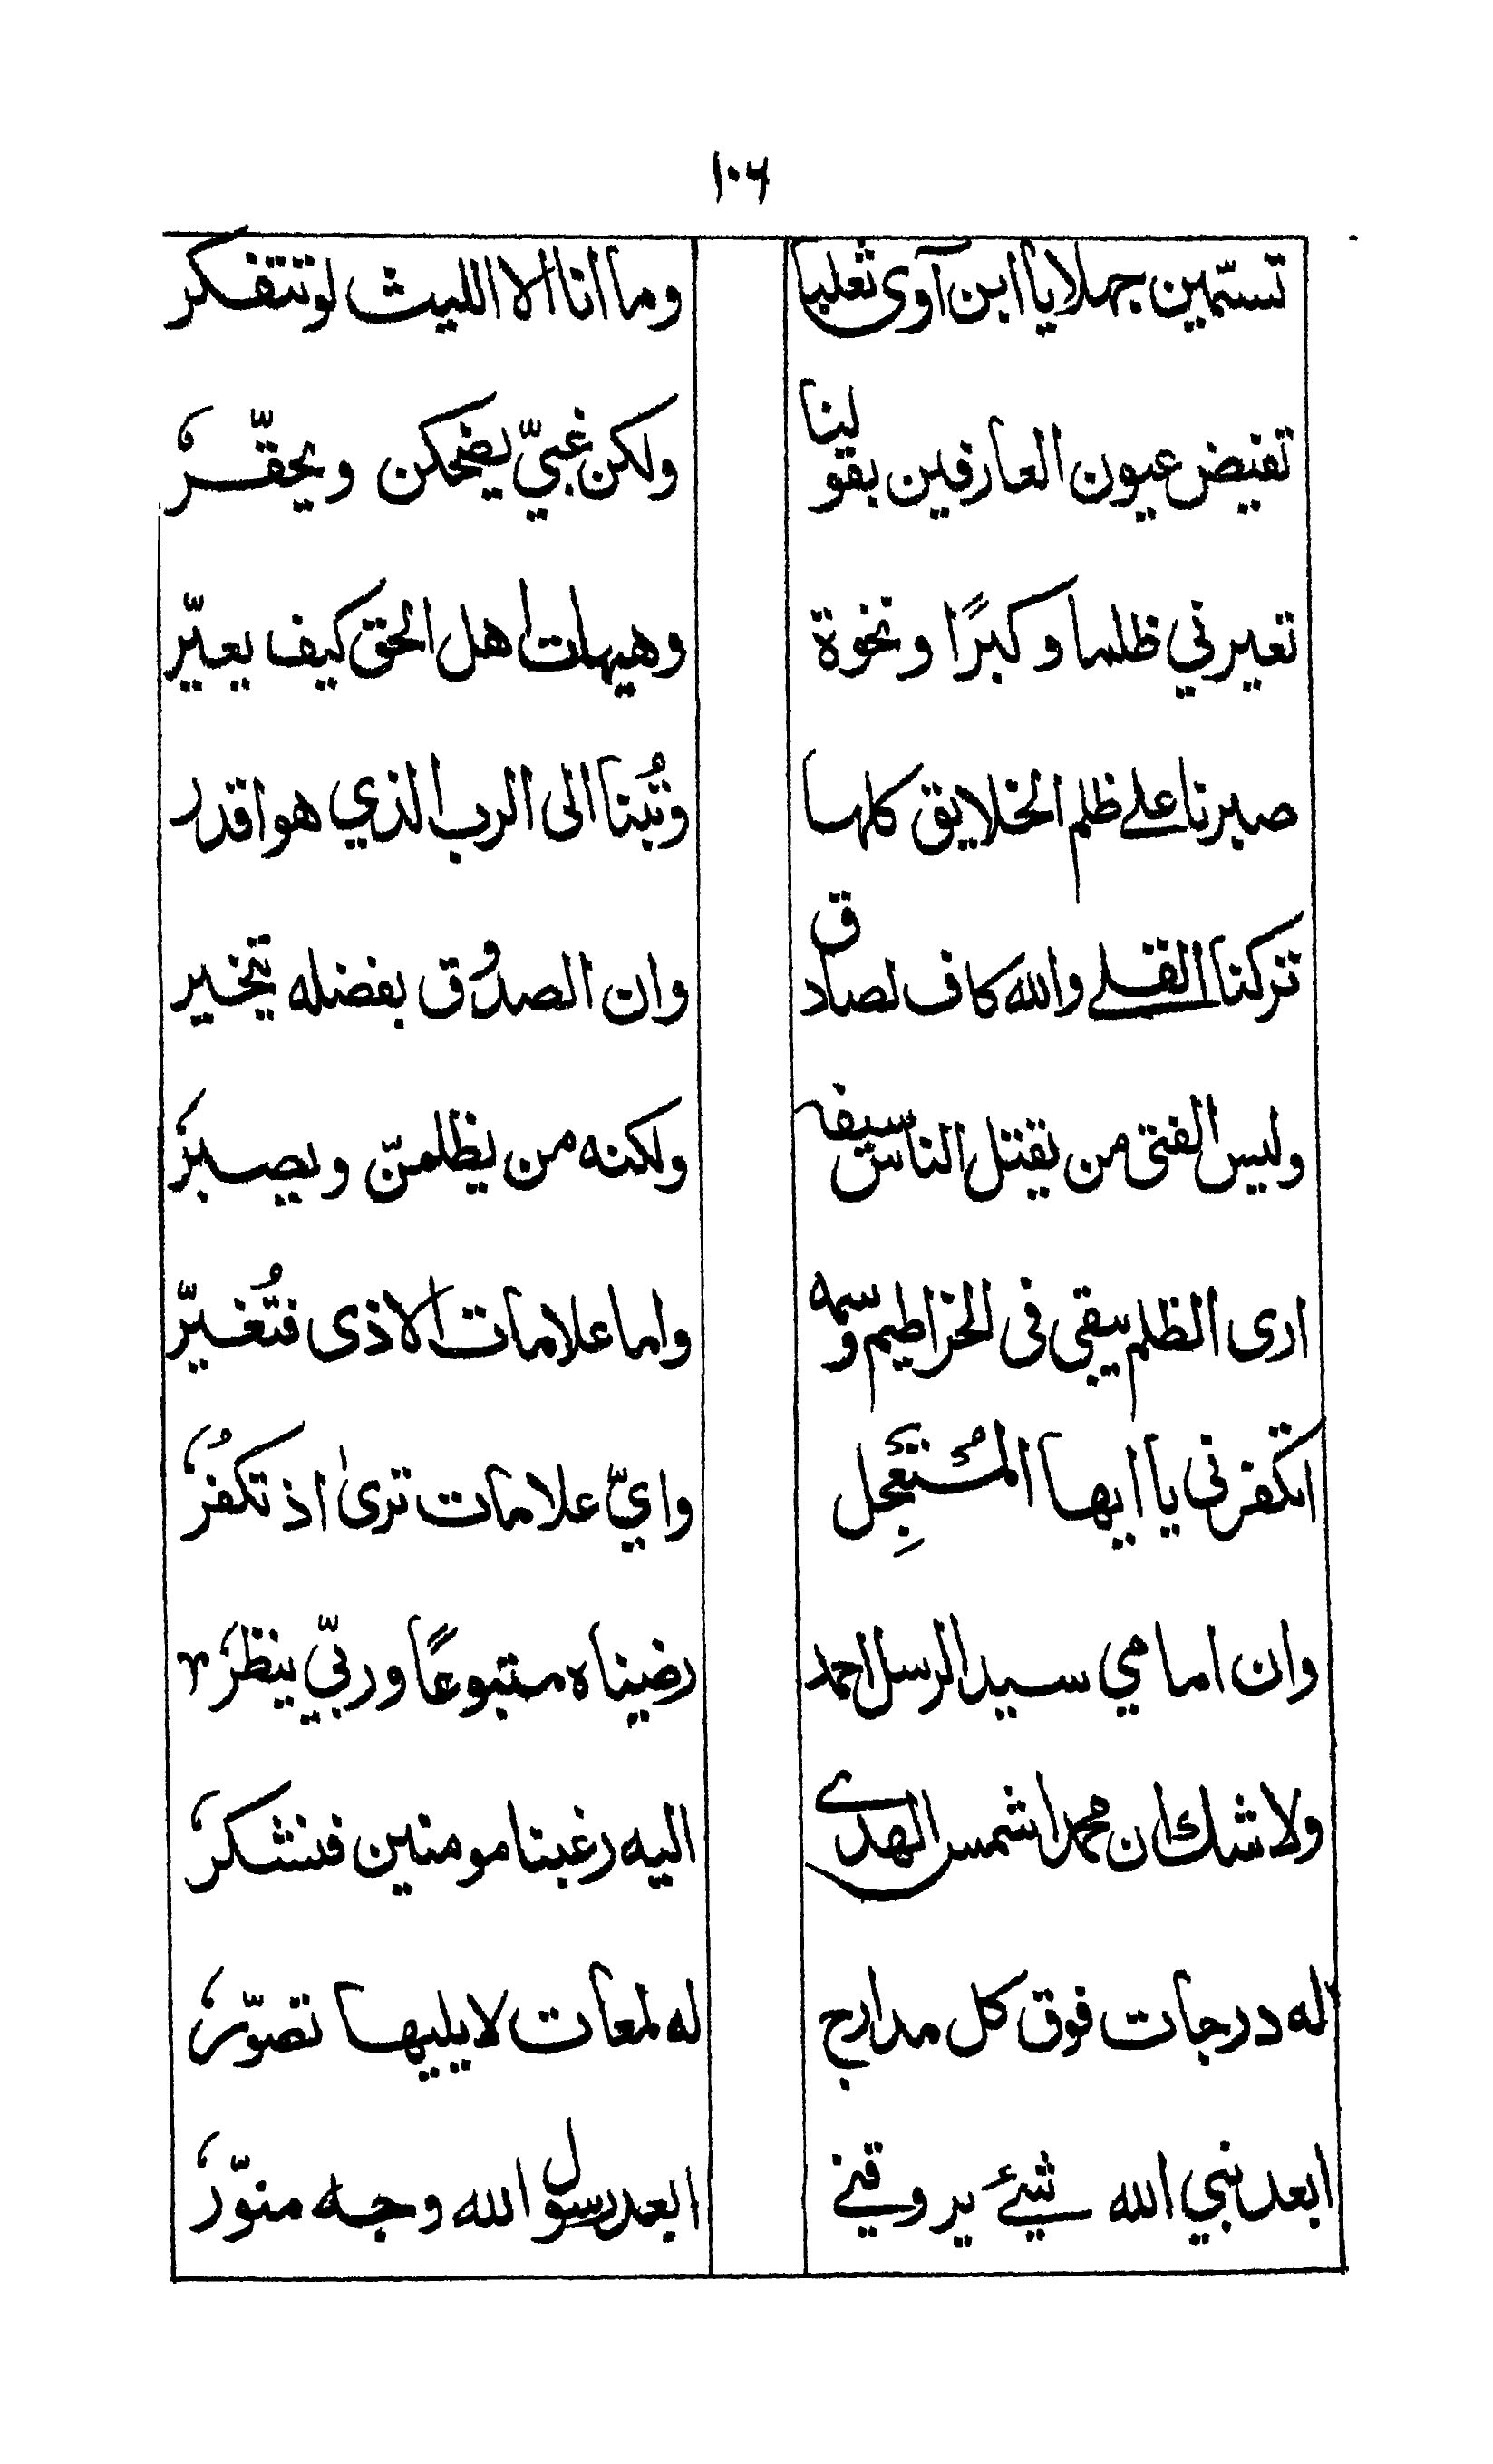 ١٠٦
تسمّين جهلا يا ابن آوى ثعلبا وما انا الا الليث لو تتفكر
تفيض عيون العارفين بقولنا ولكن غبيّ يضحكن ويحقّر
تعيرني ظلما وكبرًا ونخوة وهيهات اهل الحق كيف يعيّر
صبرنا علے ظلم الخلايق كلها وتُبنا الى الرب الذي هو اقدر
تركنا القلے والله كاف لصادق وان الصدوق بفضله يتخير
وليس الفتى من يقتل الناس سيفه ولكنه من يظلمنّ ويصبر
ارى الظلم يبقى فى الخراطيم وسمه واما علامات الاذى فتُغيّر
اتكفرنى يا ايها المُستعجِل وايّ علامات ترىٰ اذ تكفُر
وان امامي سيد الرسل احمد رضيناه متبوعًا وربّي ينظر
ولا شك ان محمدا شمس الهدے اليه رغبنا مومنين فنشكر
له درجات فوق كل مدارج له لمعات لا يليها تصوّر
ابعد نبي الله شيئ يروقنے ابعد رسول الله وجه منوّر